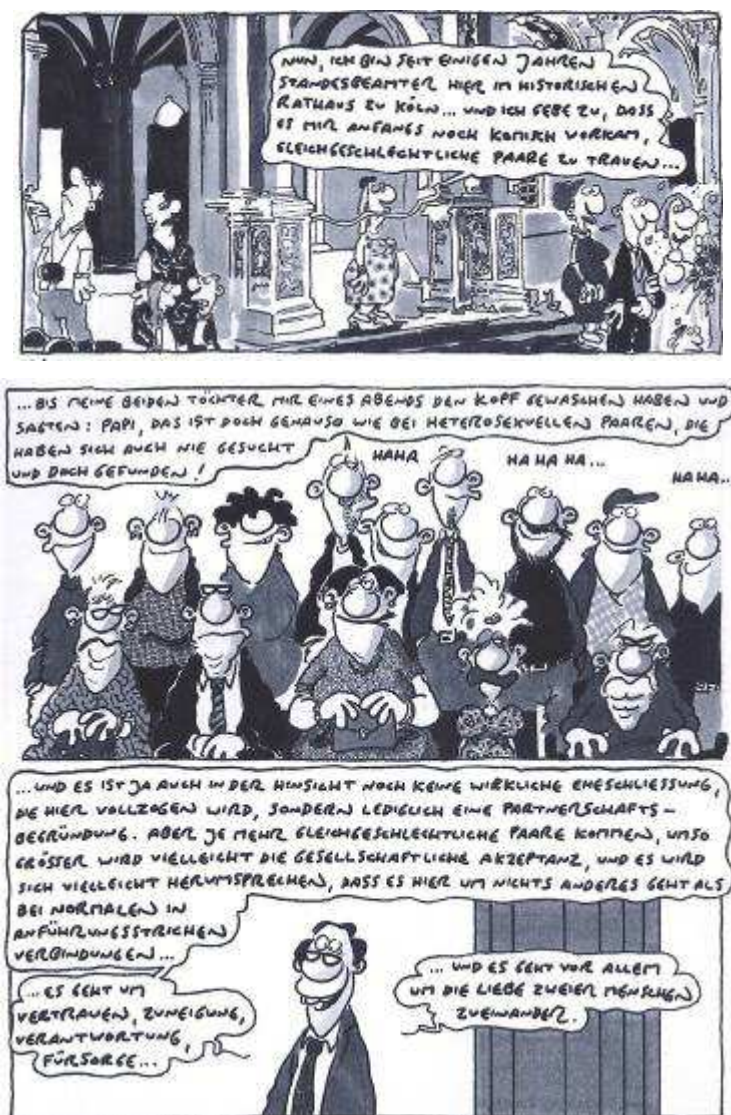 NUN, ICH BIN SEIT EINIGEN JAHREN
STANDESBEAMTER HIER IM HISTORISCHEN
RATHAUS ZU KÖLN... UND ICH GEBE ZU, DASS
ES MIR ANFANGS NOCH KOMISCH VORKAM,
GLEICHGESCHLECHTLICHE PAARE ZU TRAUEN...
...BIS MEINE BEIDEN TÖCHTER MIR EINES ABENDS DEN KOPF GEWASCHEN HABEN UND
SAGTEN: PAPI, DAS IST DOCH GENAUSO WIE BEI HETEROSEXUELLEN PAAREN, DIE
HABEN SICH AUCH NIE GESUCHT
UND DOCH GEFUNDEN!
HAHA
HA HA HA...
HA HA..
...UND ES IST JA AUCH IN DER HINSICHT NOCH KEINE WIRKLICHE EHESCHLIESSUNG,
DIE HIER VOLLZOGEN WIRD, SONDERN LEDIGLICH EINE PARTNERSCHAFTS-
BEGRÜNDUNG. ABER JE MEHR GLEICHGESCHLECHTLICHE PAARE KOMMEN, UMSO
GRÖSSER WIRD VIELLEICHT DIE GESELLSCHAFTLICHE AKZEPTANZ, UND ES WIRD
SICH VIELLEICHT HERUMSPRECHEN, DASS ES HIER UM NICHTS ANDERES GEHT ALS
BEI NORMALEN IN
ANFÜHRUNGSSTRICHEN
VERBINDUNGEN...
...ES GEHT UM
VERTRAUEN, ZUNEIGUNG,
VERANTWORTUNG,
FÜRSORGE...
... UND ES GEHT VOR ALLEM
UM DIE LIEBE ZWEIER MENSCHEN
ZUEINANDER.